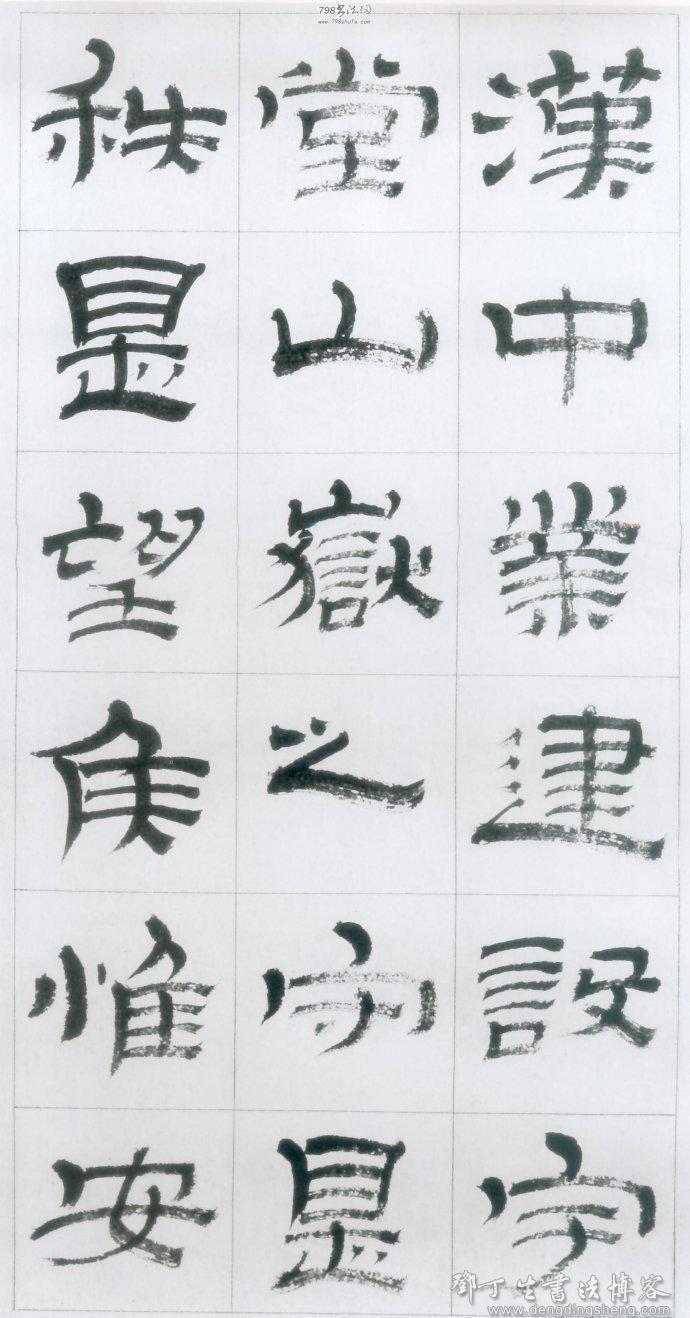 798书法网
www.798shufa.com
漢中業建設宇
堂山嶽之守是
秩是望侯惟安
鄧丁生書法博客
www.dengdingsheng.com